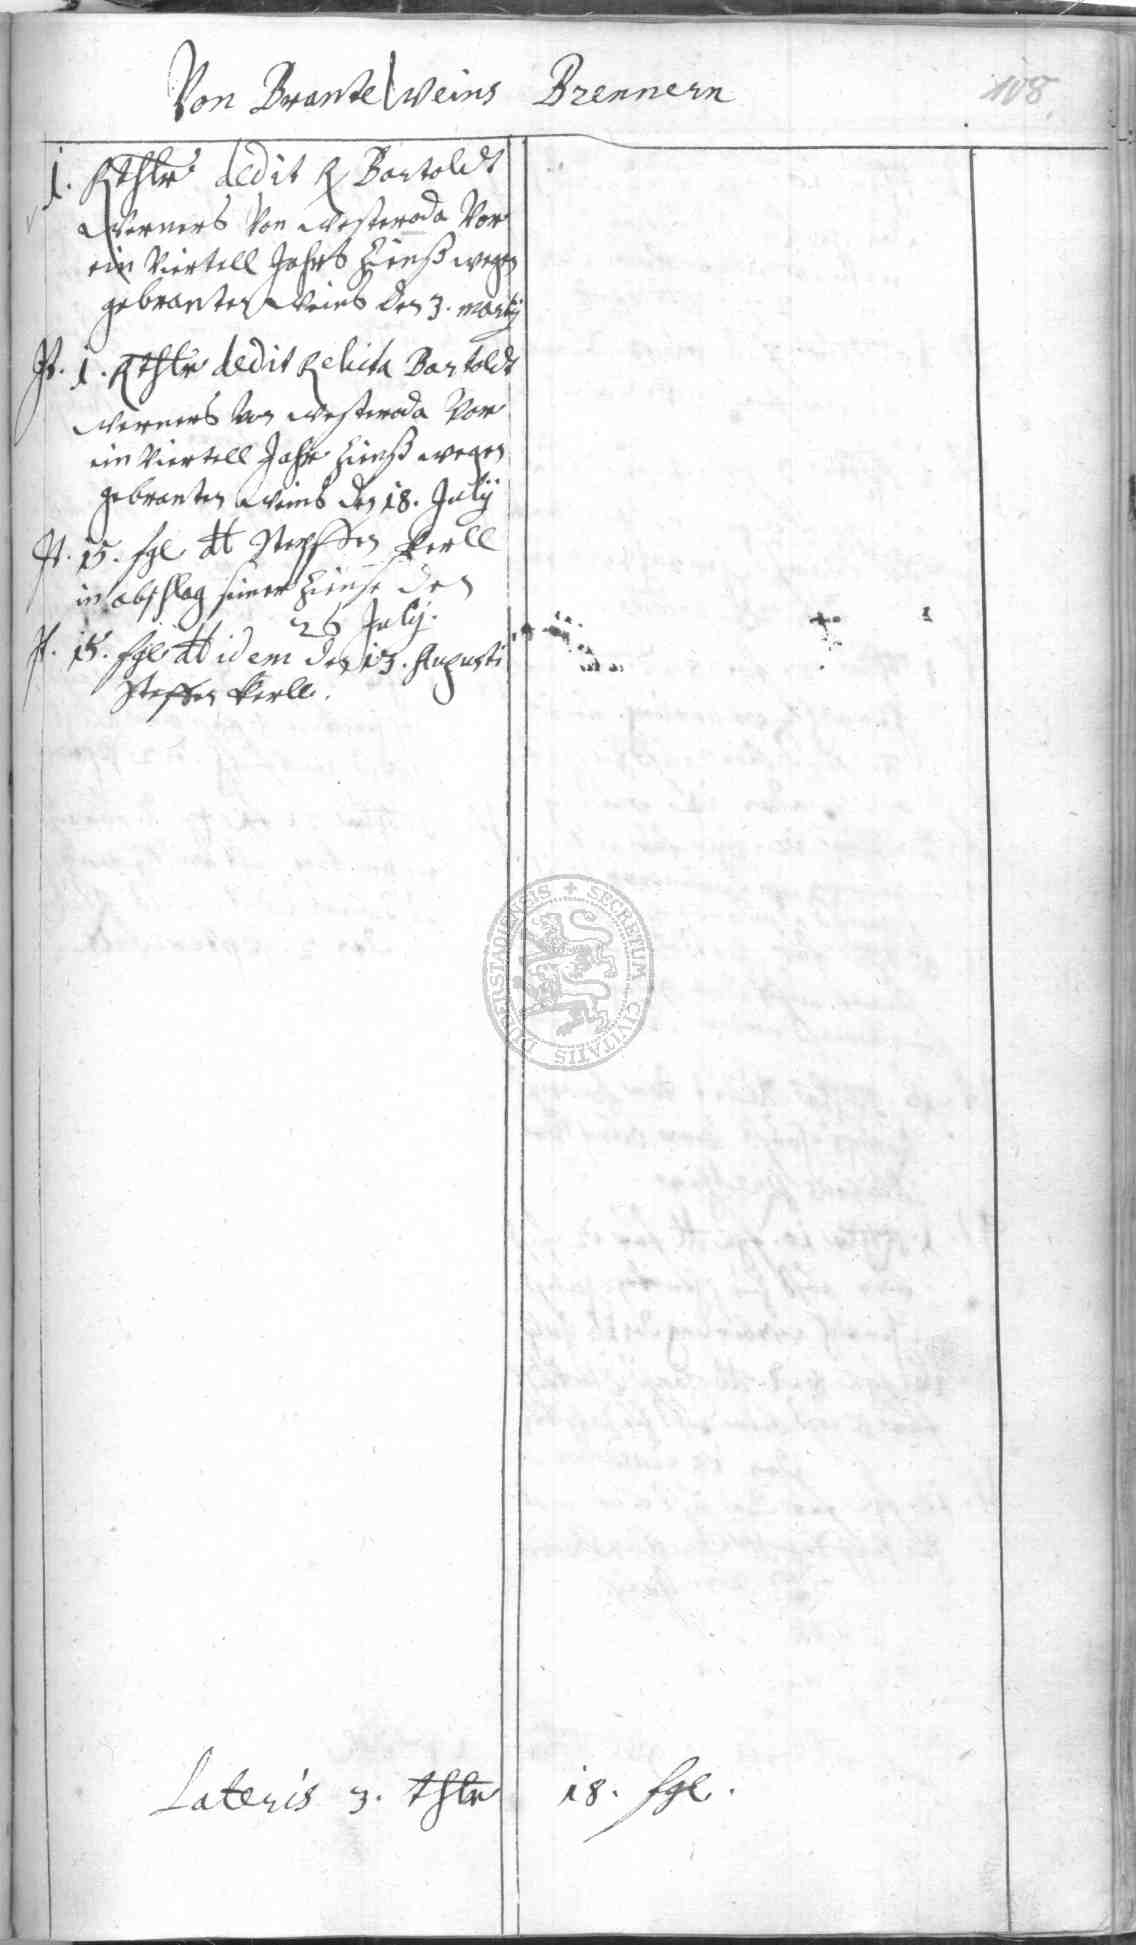 Von Branteweins Brennern
108
1. Rthlr dedit R Bartoldt
Werners Von Westeroda Vor
ein Viertell Jahrs Zienß wegen
gebranten Weins den 3. martij
It. 1. Rthlr dedit Relicta Bartoldt
Werners Von Westeroda Vor
ein Viertell Jahr Zienß wegen
gebranten Weins den 18. Julij
It. 15. sgl dt Steffen Kerll
in abschlag seiner Zienße den
26 July.
It. 15. sgl dt idem den 13. Augusti
Steffen Kerll.
SECRETUM CIVITATIS DUDERSTADIENSIS
Lateris 3. thlr 18. sgl.